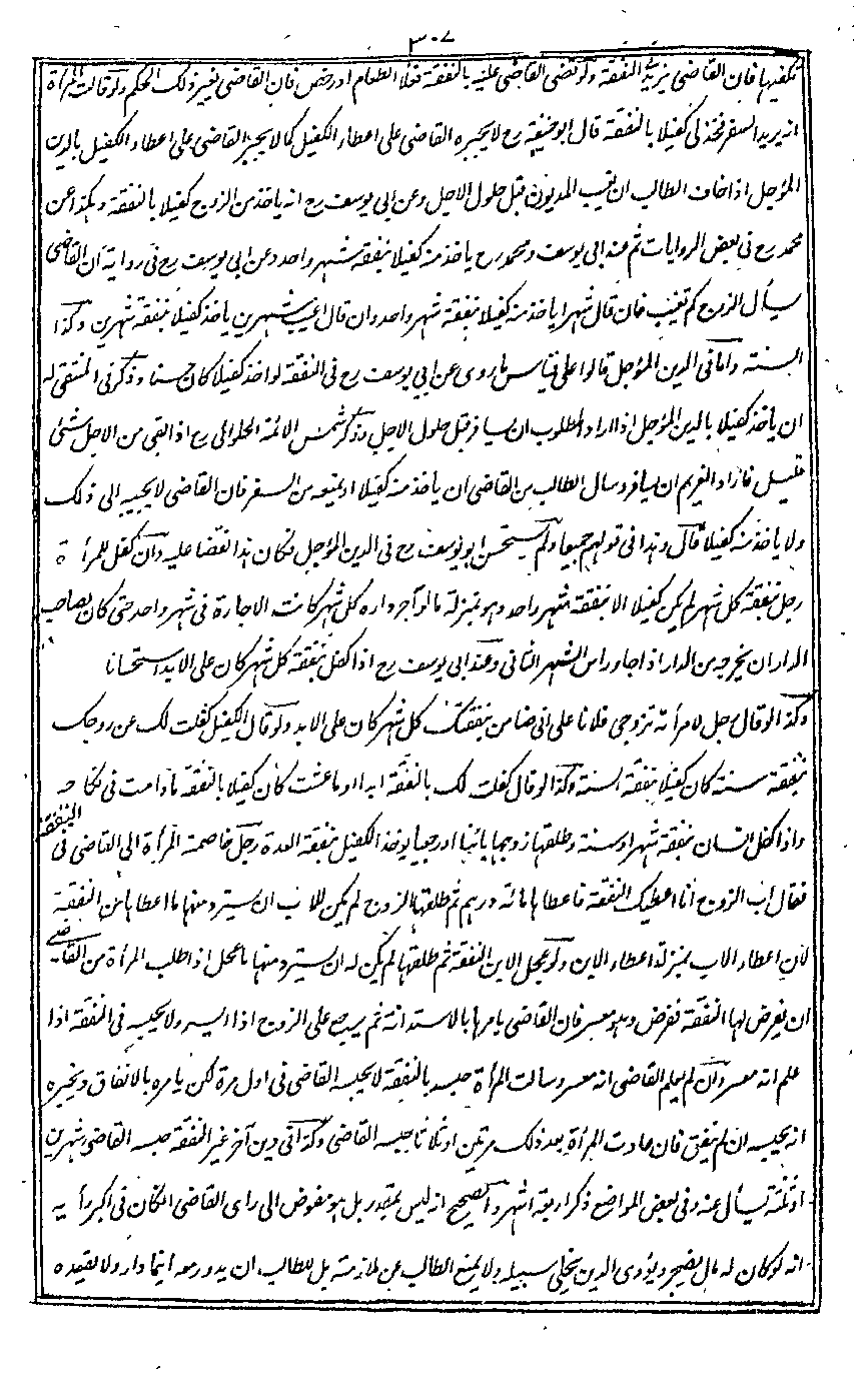 ٣٠٧
تكفيها فان القاضى يزيد فى النفقة ولو قضى القاضى عليه بالنفقة فغلا الطعام او رخص فان القاضى يغير ذلك الحكم ولو قالت المرأة
انه يريد السفر فخذ لى كفيلا بالنفقة قال ابو حنيفة رح لا يجبره القاضى على اعطاء الكفيل كما لا يجبر القاضى على اعطاء الكفيل بالدين
المؤجل اذا خاف الطالب ان يغيب المديون قبل حلول الاجل وعن ابى يوسف رح انه ياخذ من الزوج كفيلا بالنفقة وهكذا عن
محمد رح فى بعض الروايات ثم عند ابى يوسف ومحمد رح ياخذ منه كفيلا بنفقة شهر واحد وعن ابى يوسف رح فى رواية ان القاضى
يسأل الزوج كم تغيب فان قال شهرا ياخذ منه كفيلا بنفقة شهر واحد وان قال اغيب شهرين ياخذ كفيلا بنفقة شهرين وكذا
السنة واما فى الدين المؤجل قالوا على قياس ما روى عن ابى يوسف رح فى النفقة لو اخذ كفيلا كان حسنا وذكر فى المنتقى له
ان ياخذ كفيلا بالدين المؤجل اذا اراد المطلوب ان يسافر قبل حلول الاجل وذكر شمس الائمة الحلوالى رح اذا بقى من الاجل شئ
قليل فاراد الغريم ان يسافر وسال الطالب من القاضى ان ياخذ منه كفيلا او يمنعه من السفر فان القاضى لا يجيبه الى ذلك
ولا ياخذ منه كفيلا قال وهذا فى قولهم جميعا ولم يستحسن ابو يوسف رح فى الدين المؤجل فكان هذا نقضا عليه وان كفل للمرأة
رجل بنفقة كل شهر لم يكن كفيلا الا بنفقة شهر واحد وهو بمنزلة ما لو آجر داره كل شهر كانت الاجارة فى شهر واحد حتى كان لصاحب
الدار ان يخرجه من الدار اذا جاء راس الشهر الثانى وعند ابى يوسف رح اذا كفل بنفقة كل شهر كان على الابد استحسانا
وكذا لو قال رجل لامرأة تزوجى فلانا على انى ضامن بنفقتك كل شهر كان على الابد ولو قال الكفيل كفلت لك عن زوجك
بنفقة سنة كان كفيلا بنفقة السنة وكذا لو قال كفلت لك بالنفقة ابدا او ما عشت كان كفيلا بالنفقة ما دامت فى نكاحه
واذا كفل انسان بنفقة شهر او سنة وطلقها زوجها بائنا او رجعيا يوخذ الكفيل بنفقة العدة رجل خاصمته المرأة الى القاضى فى النفقة
فقال اب الزوج انا اعطيك النفقة فاعطاها مائة درهم ثم طلقها الزوج لم يكن للاب ان يسترد منها ما اعطاها من النفقة
لان اعطاء الاب بمنزلة اعطاء الابن ولو عجل الابن النفقة ثم طلقها لم يكن له ان يسترد منها ما عجل اذا طلب المرأة من القاضى
ان يفرض لها النفقة ففرض وهو معسر فان القاضى يامرها بالاستدانة ثم يرجع على الزوج اذا ايسر ولا يحبسه فى النفقة اذا
علم انه معسر وان لم يعلم القاضى انه معسر وسالت المرأة حبسه بالنفقة لا يحبسه القاضى فى اول مرة لكن يامره بالانفاق ويخبره
انه يحبسه ان لم ينفق فان عادت المرأة بعد ذلك مرتين او ثلاثا حبسه القاضى وكذا فى دين آخر غير النفقة حبسه القاضى شهرين
او ثلثة يسأل عنه وفى بعض المواضع ذكر اربعة اشهر والصحيح انه ليس بمقدر بل هو مفوض الى راى القاضى ان كان فى اكبر رأيه
انه لو كان له مال يضجر ويؤدى الدين يخلى سبيله ولا يمنع الطالب عن ملازمته بل للطالب ان يدور معه اينما دار ولا يقعده